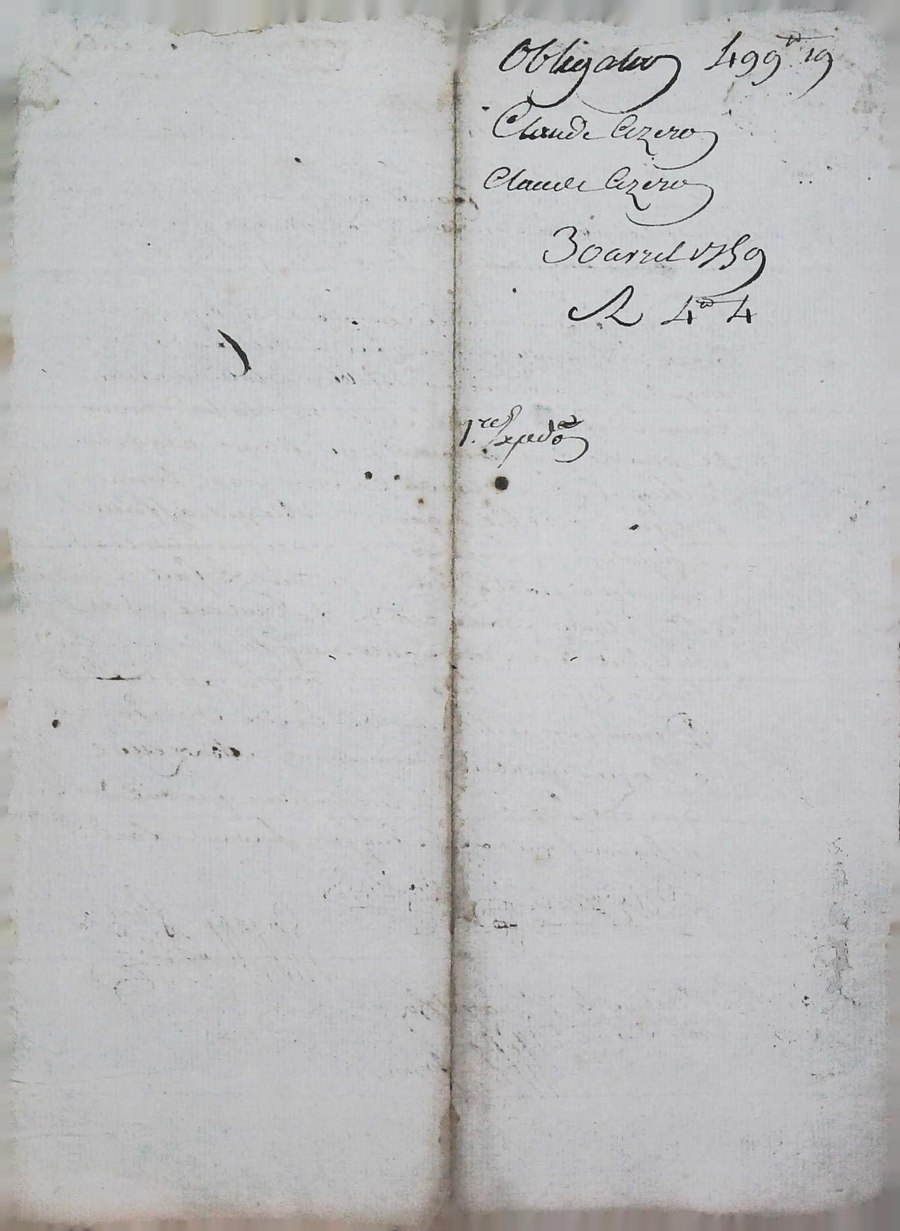 Obligation 499tt 19
Claude Cizeron
Claude Cizeron
30 avril 1759
R 4tt 4
1.re Expedon